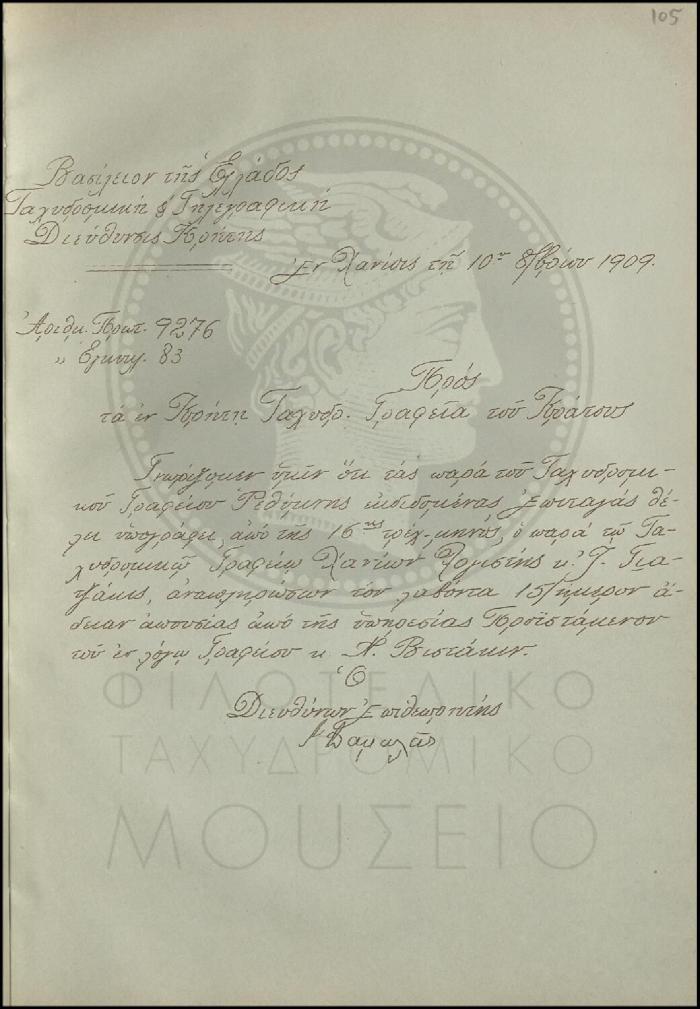 105
Βασίλειον τῆς Ἑλλάδος
Ταχυδρομική & Τηλεγραφική
Διεύθυνσις Κρήτης
Ἐν Χανίοις τῇ 10ῃ 8/βρίου 1909.
Ἀριθμ. Πρωτ. 9276
„ Ἐγκυκλ. 83
Πρός
τά ἐν Κρήτῃ Ταχυδρ. Γραφεῖα τοῦ Κράτους
Γνωρίζομεν ὑμῖν ὅτι τάς παρά τοῦ Ταχυδρομι-
κοῦ Γραφείου Ρεθύμνης ἐκδιδομένας ἐπιταγάς θέ-
λει ὑπογράφει, ἀπό τῆς 16ης τρέχ. μηνός, ὁ παρά τῷ Τα-
χυδρομικῷ Γραφείῳ Χανίων Λογιστής κ. Γ.
τζάκις, ἀναπληρώσων τόν λαβόντα 15/ήμερον ἄ-
δειαν ἀπουσίας ἀπό τῆς ὑπηρεσίας Προϊστάμενον
τοῦ ἐν λόγῳ Γραφείου κ. Ν. Βιστάκιν.
Ὁ
Διευθύνων Ἐπιθεωρητής
Δαμαλᾶς
ΦΙΛΟΤΕΛΙΚΟ
ΤΑΧΥΔΡΟΜΙΚΟ
ΜΟΥΣΕΙΟ